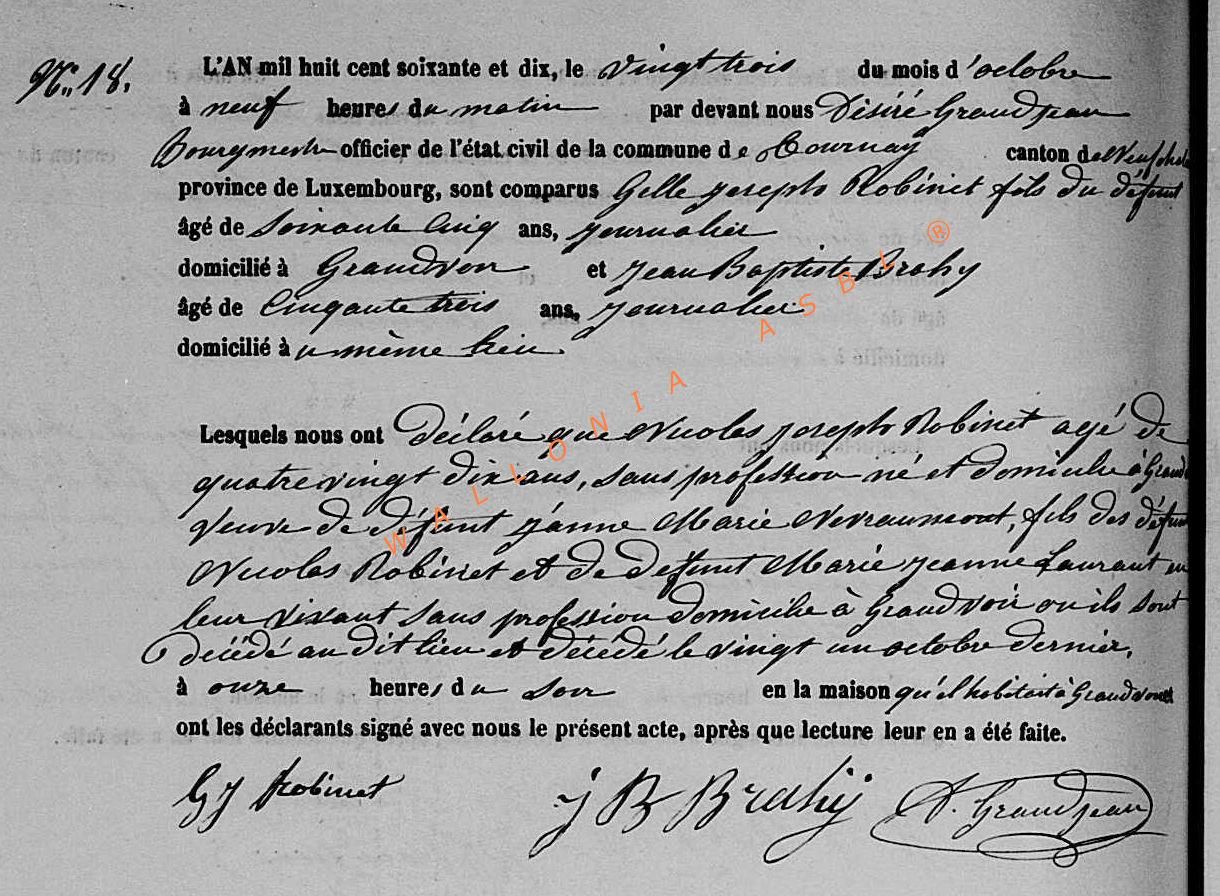 N° 18.
L'AN mil huit cent soixante et dix, le vingt trois du mois d'octobre
à neuf heures du matin par devant nous Désiré Grandjean
Bourgmestre officier de l'état civil de la commune de Tournay canton de Neufch
province de Luxembourg, sont comparus Gelle joseph Robinet fils du défunt
âgé de soixante cinq ans, journalier
domicilié à Grandvoir et Jean Baptiste Brahy
âgé de cinquante trois ans, journalier
domicilié à u même lieu
Lesquels nous ont déclaré que Nicolas joseph Robinet agé de
quatrevingt dix ans, sans profession né et domicilié à Grand
veuve de défunt jéanne Marie Nevraumont, fils des défun
Nicolas Robinet et de défunt Marie jeanne Laurant en
leur vivant sans profession domicilié à Grandvoir ou ils sont
décédé au dit lieu et décédé le vingt un octobre dernier,
à onze heures du soir en la maison qu'il habitait à Grandvoir et
ont les déclarants signé avec nous le présent acte, après que lecture leur en a été faite.
GJ Robinet J B Brahy D. Grandjean
WALLONIA ASBL ®